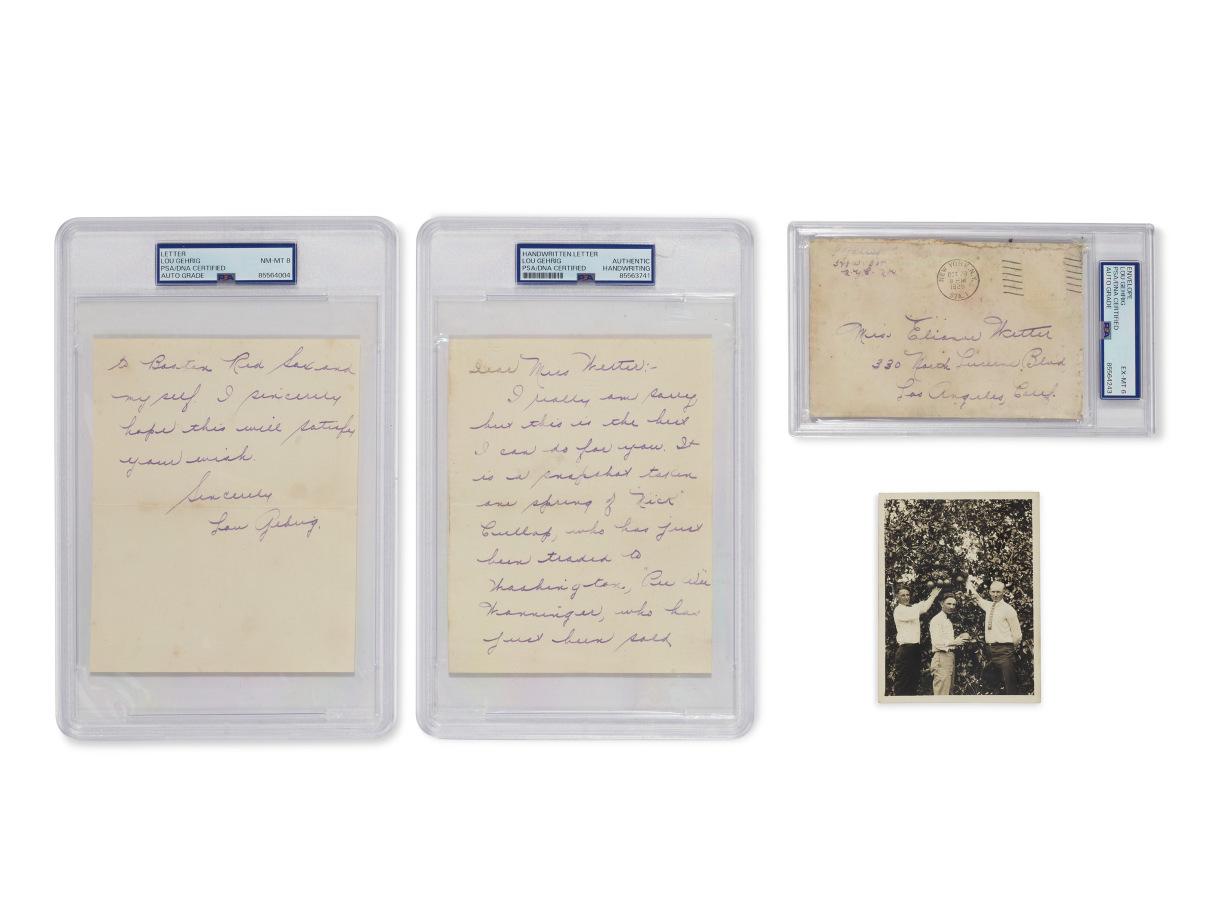 LETTER
LOU GEHRIG NM-MT 8
PSA/DNA CERTIFIED
AUTO GRADE PSA 85564004
to Boston Red Sox and
myself I sincerely
hope this will satisfy
your wish.
Sincerely
Lou Gehrig.
HANDWRITTEN LETTER
LOU GEHRIG AUTHENTIC
PSA/DNA CERTIFIED HANDWRITING
PSA 85563741
Dear Miss Wetter:-
I really am sorry
but this is the best
I can do for you. It
is a snapshot taken
one spring of "Nick"
Cullop, who has just
been traded to
Washington, "Pee Wee"
Wanninger, who has
just been sold
NEW YORK, N.Y.
OCT 29
STA.
Miss Elianor Wetter
330 North Lucerne Blvd
Los Angeles, Calif.
ENVELOPE
LOU GEHRIG EX-MT 6
PSA/DNA CERTIFIED
AUTO GRADE PSA 85564243